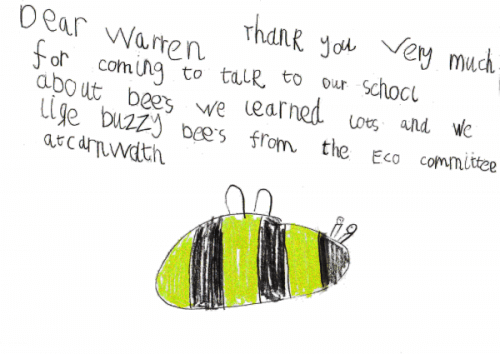 Dear Warren Thank you very much
for coming to talk to our school
about bee's we learned lots and we
like buzzy bee's from the Eco committee
at carnwath